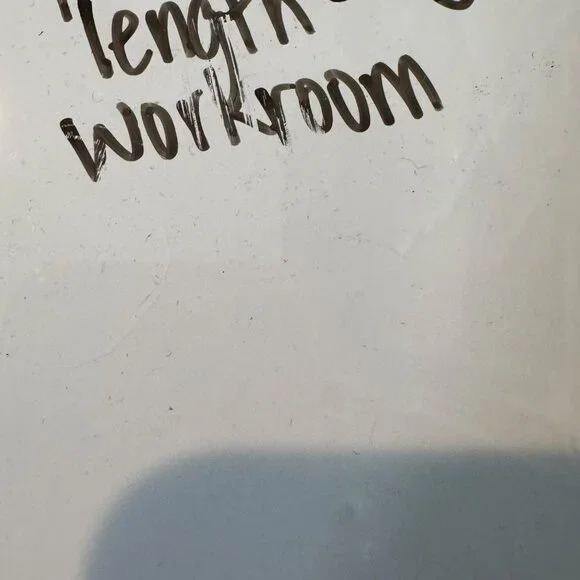 "length
workroom